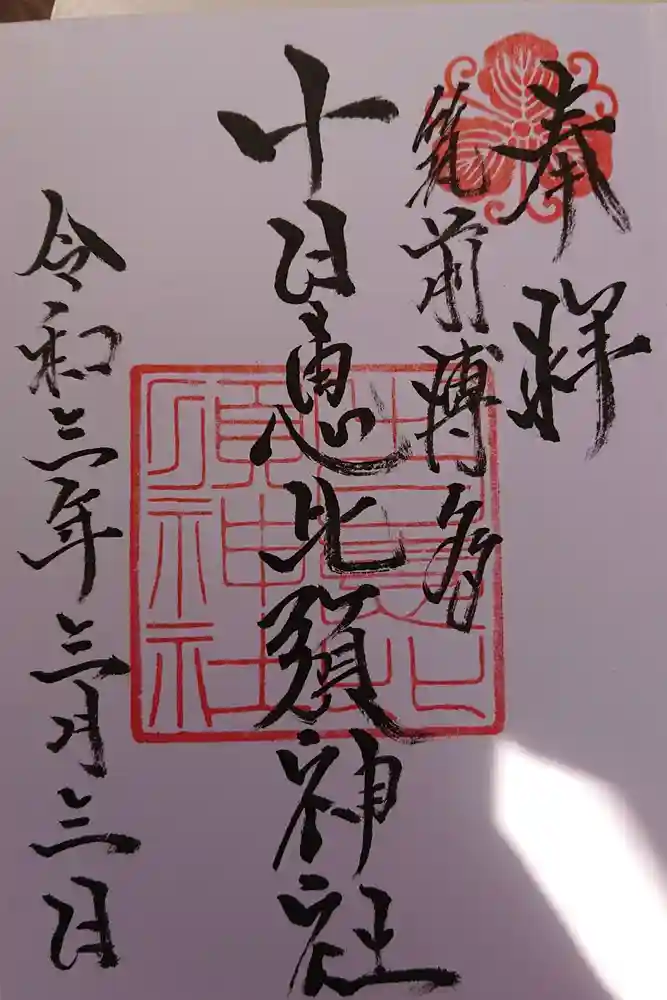 奉拝
筑前博多
十日恵比須神社
令和三年三月三日
十日恵比須神社